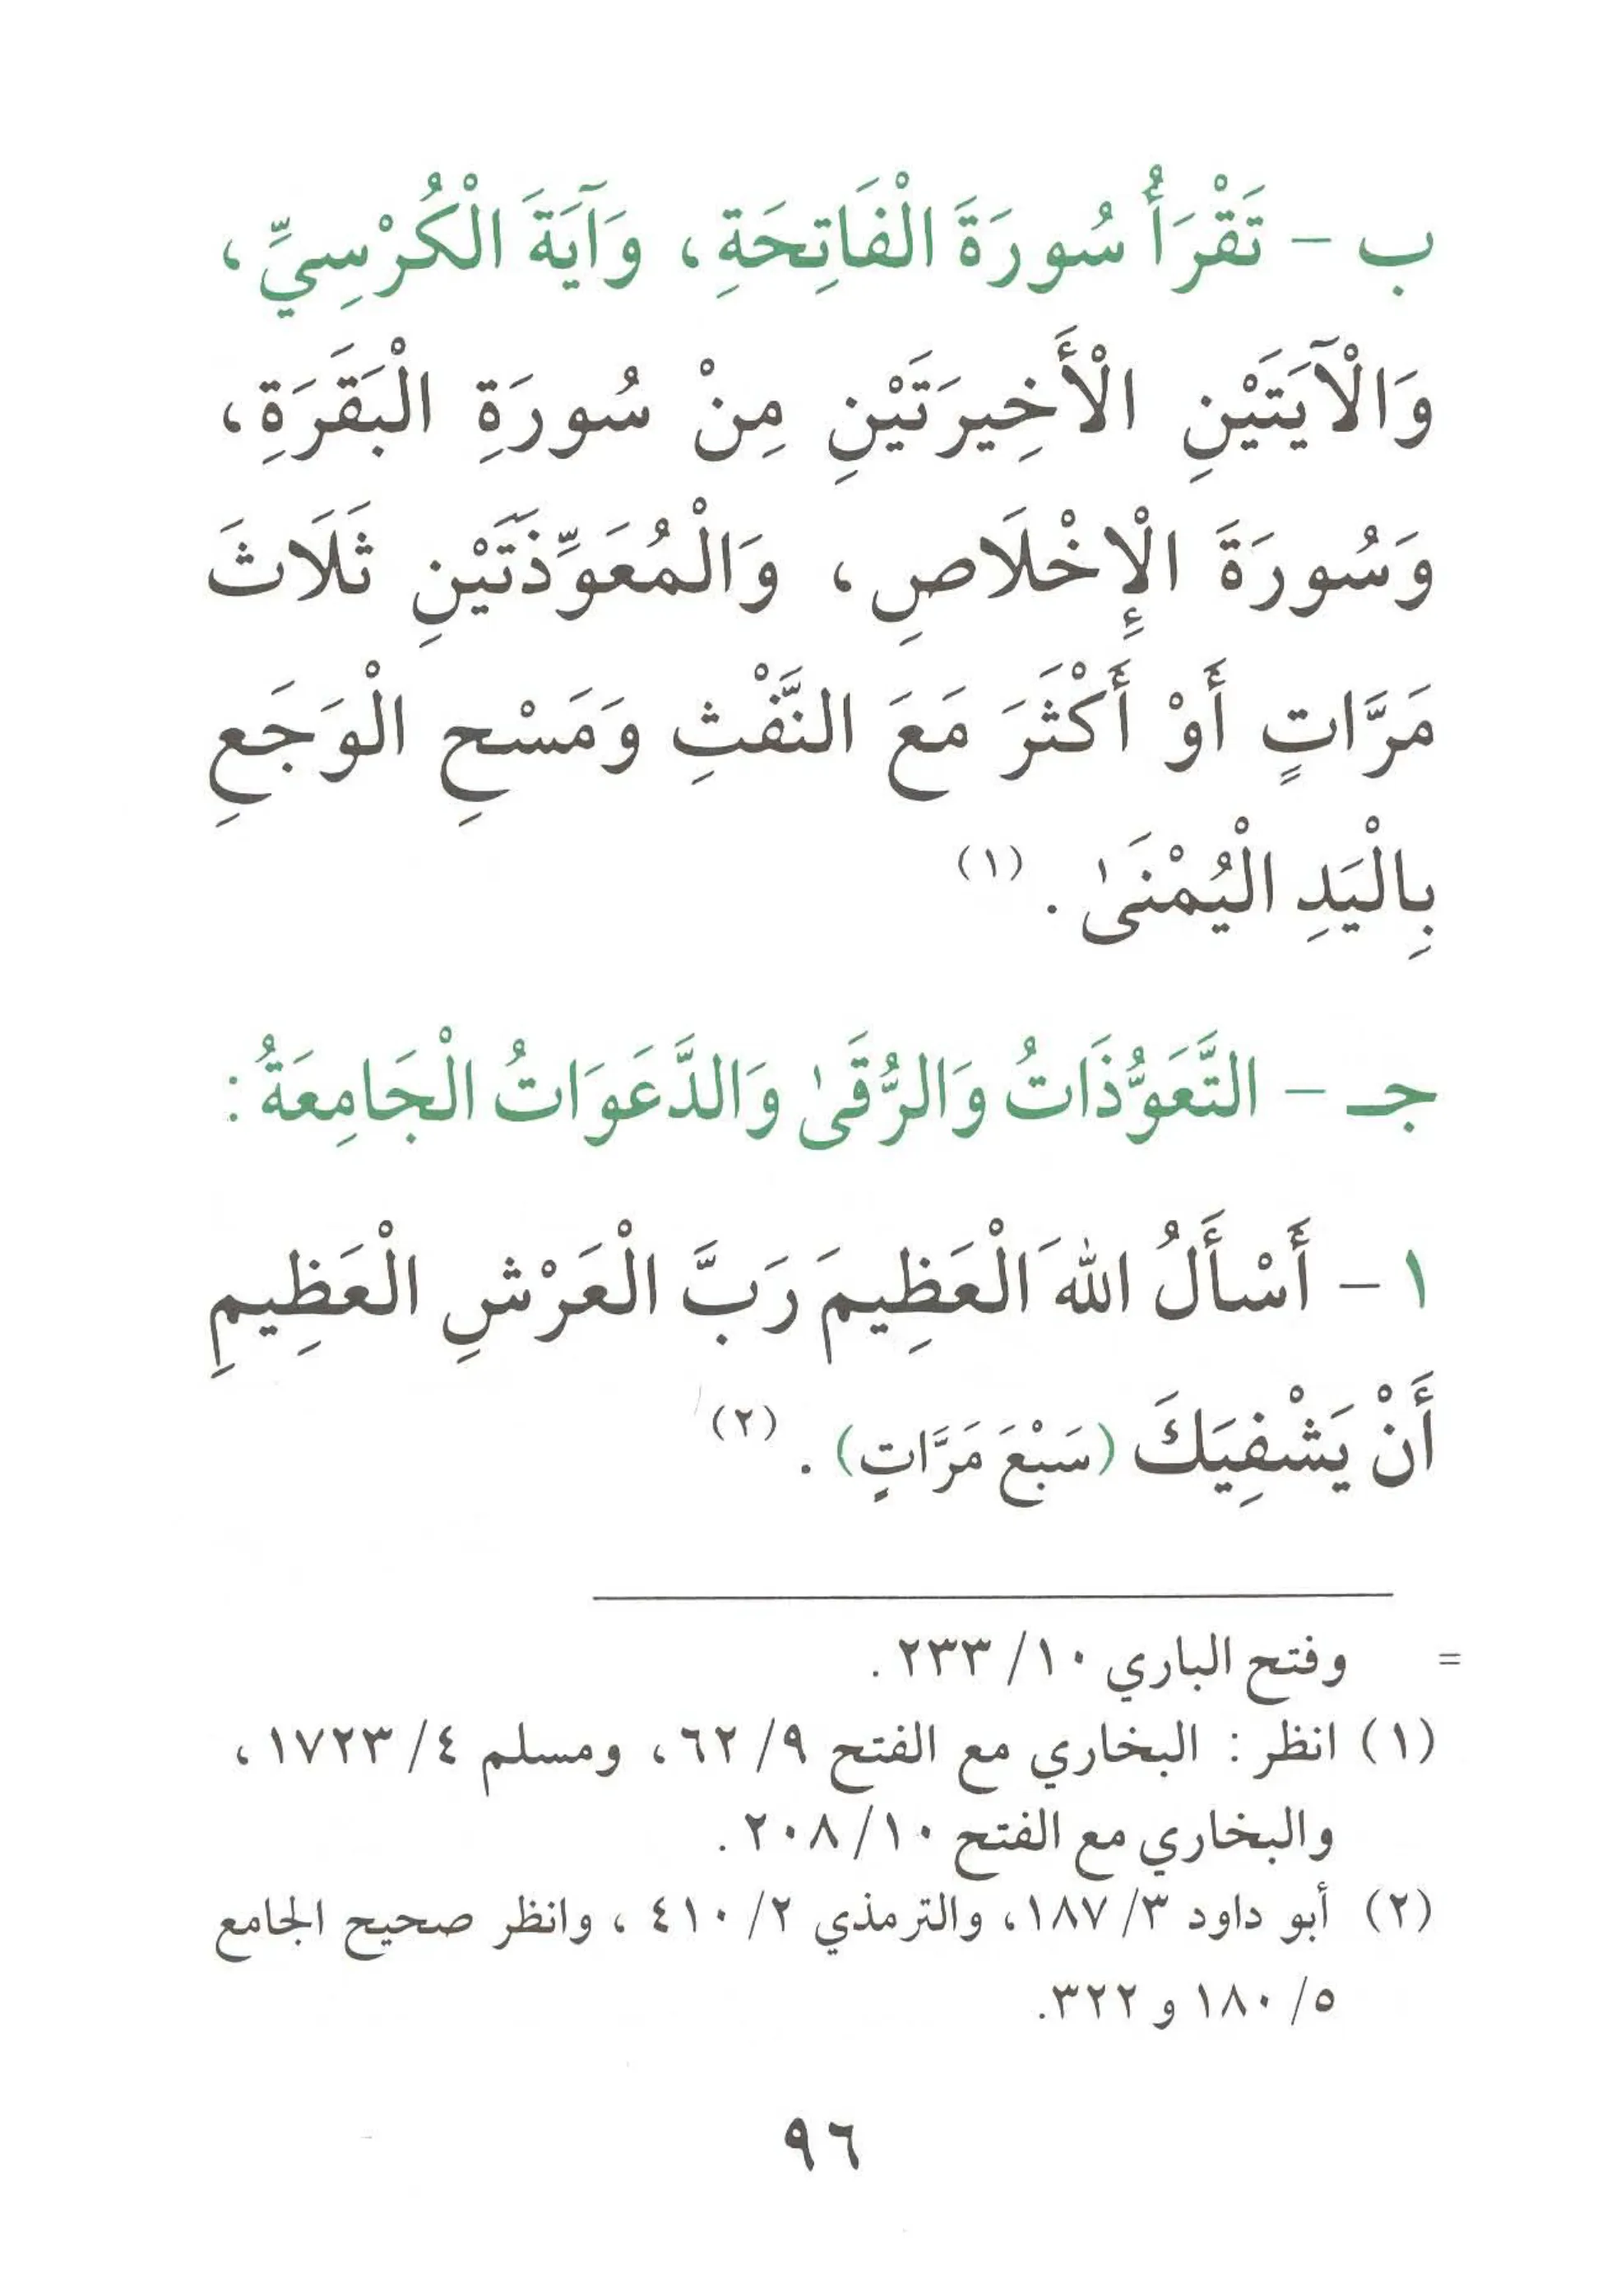 ب - تَقْرَأُ سُورَةَ الْفَاتِحَةِ، وَآيَةَ الْكُرْسِيِّ،
وَالْآيَتَيْنِ الْأَخِيرَتَيْنِ مِنْ سُورَةِ الْبَقَرَةِ،
وَسُورَةَ الْإِخْلَاصِ، وَالْمُعَوِّذَتَيْنِ ثَلَاثَ
مَرَّاتٍ أَوْ أَكْثَرَ مَعَ النَّفْثِ وَمَسْحِ الْوَجَعِ
بِالْيَدِ الْيُمْنَىٰ. (١)
جـ - التَّعَوُّذَاتُ وَالرُّقَىٰ وَالدَّعَوَاتُ الْجَامِعَةُ:
١ - أَسْأَلُ اللهَ الْعَظِيمَ رَبَّ الْعَرْشِ الْعَظِيمِ
أَنْ يَشْفِيَكَ (سَبْعَ مَرَّاتٍ). (٢)
= وفتح الباري ١٠/ ٢٣٣.
(١) انظر: البخاري مع الفتح ٩/ ٦٢، ومسلم ٤/ ١٧٢٣،
والبخاري مع الفتح ١٠/ ٢٠٨.
(٢) أبو داود ٣/ ١٨٧، والترمذي ٢/ ٤١٠، وانظر صحيح الجامع
٥/ ١٨٠ و ٣٢٢.
٩٦